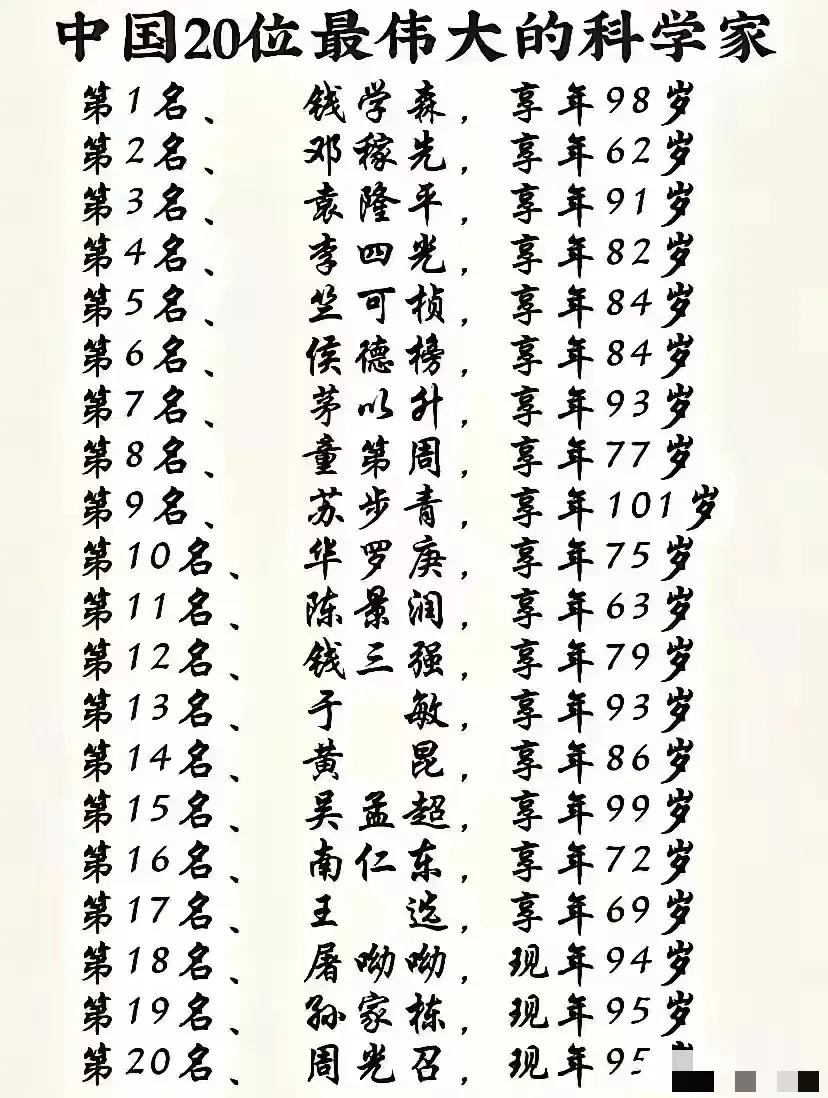 中国20位最伟大的科学家
第1名、 钱学森，享年98岁
第2名、 邓稼先，享年62岁
第3名、 袁隆平，享年91岁
第4名、 李四光，享年82岁
第5名、 竺可桢，享年84岁
第6名、 侯德榜，享年84岁
第7名、 茅以升，享年93岁
第8名、 童第周，享年77岁
第9名、 苏步青，享年101岁
第10名、 华罗庚，享年75岁
第11名、 陈景润，享年63岁
第12名、 钱三强，享年79岁
第13名、 于敏，享年93岁
第14名、 黄昆，享年86岁
第15名、 吴孟超，享年99岁
第16名、 南仁东，享年72岁
第17名、 王选，享年69岁
第18名、 屠呦呦，现年94岁
第19名、 孙家栋，现年95岁
第20名、 周光召，现年95